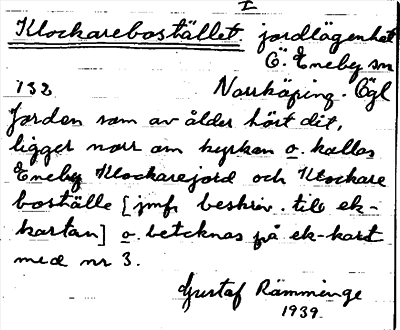 I
Klockarebostället jordlägenhet
Ö. Eneby sn
132 Norrköping. Ögl
Jorden som av ålder hört dit,
ligger norr om kyrkan o. kallas
Eneby Klockarejord och Klockare
boställe [jmfr beskriv. till ek-
kartan] o. betecknas på ek-kart
med nr 3.
Gustaf Rämminge
1939.